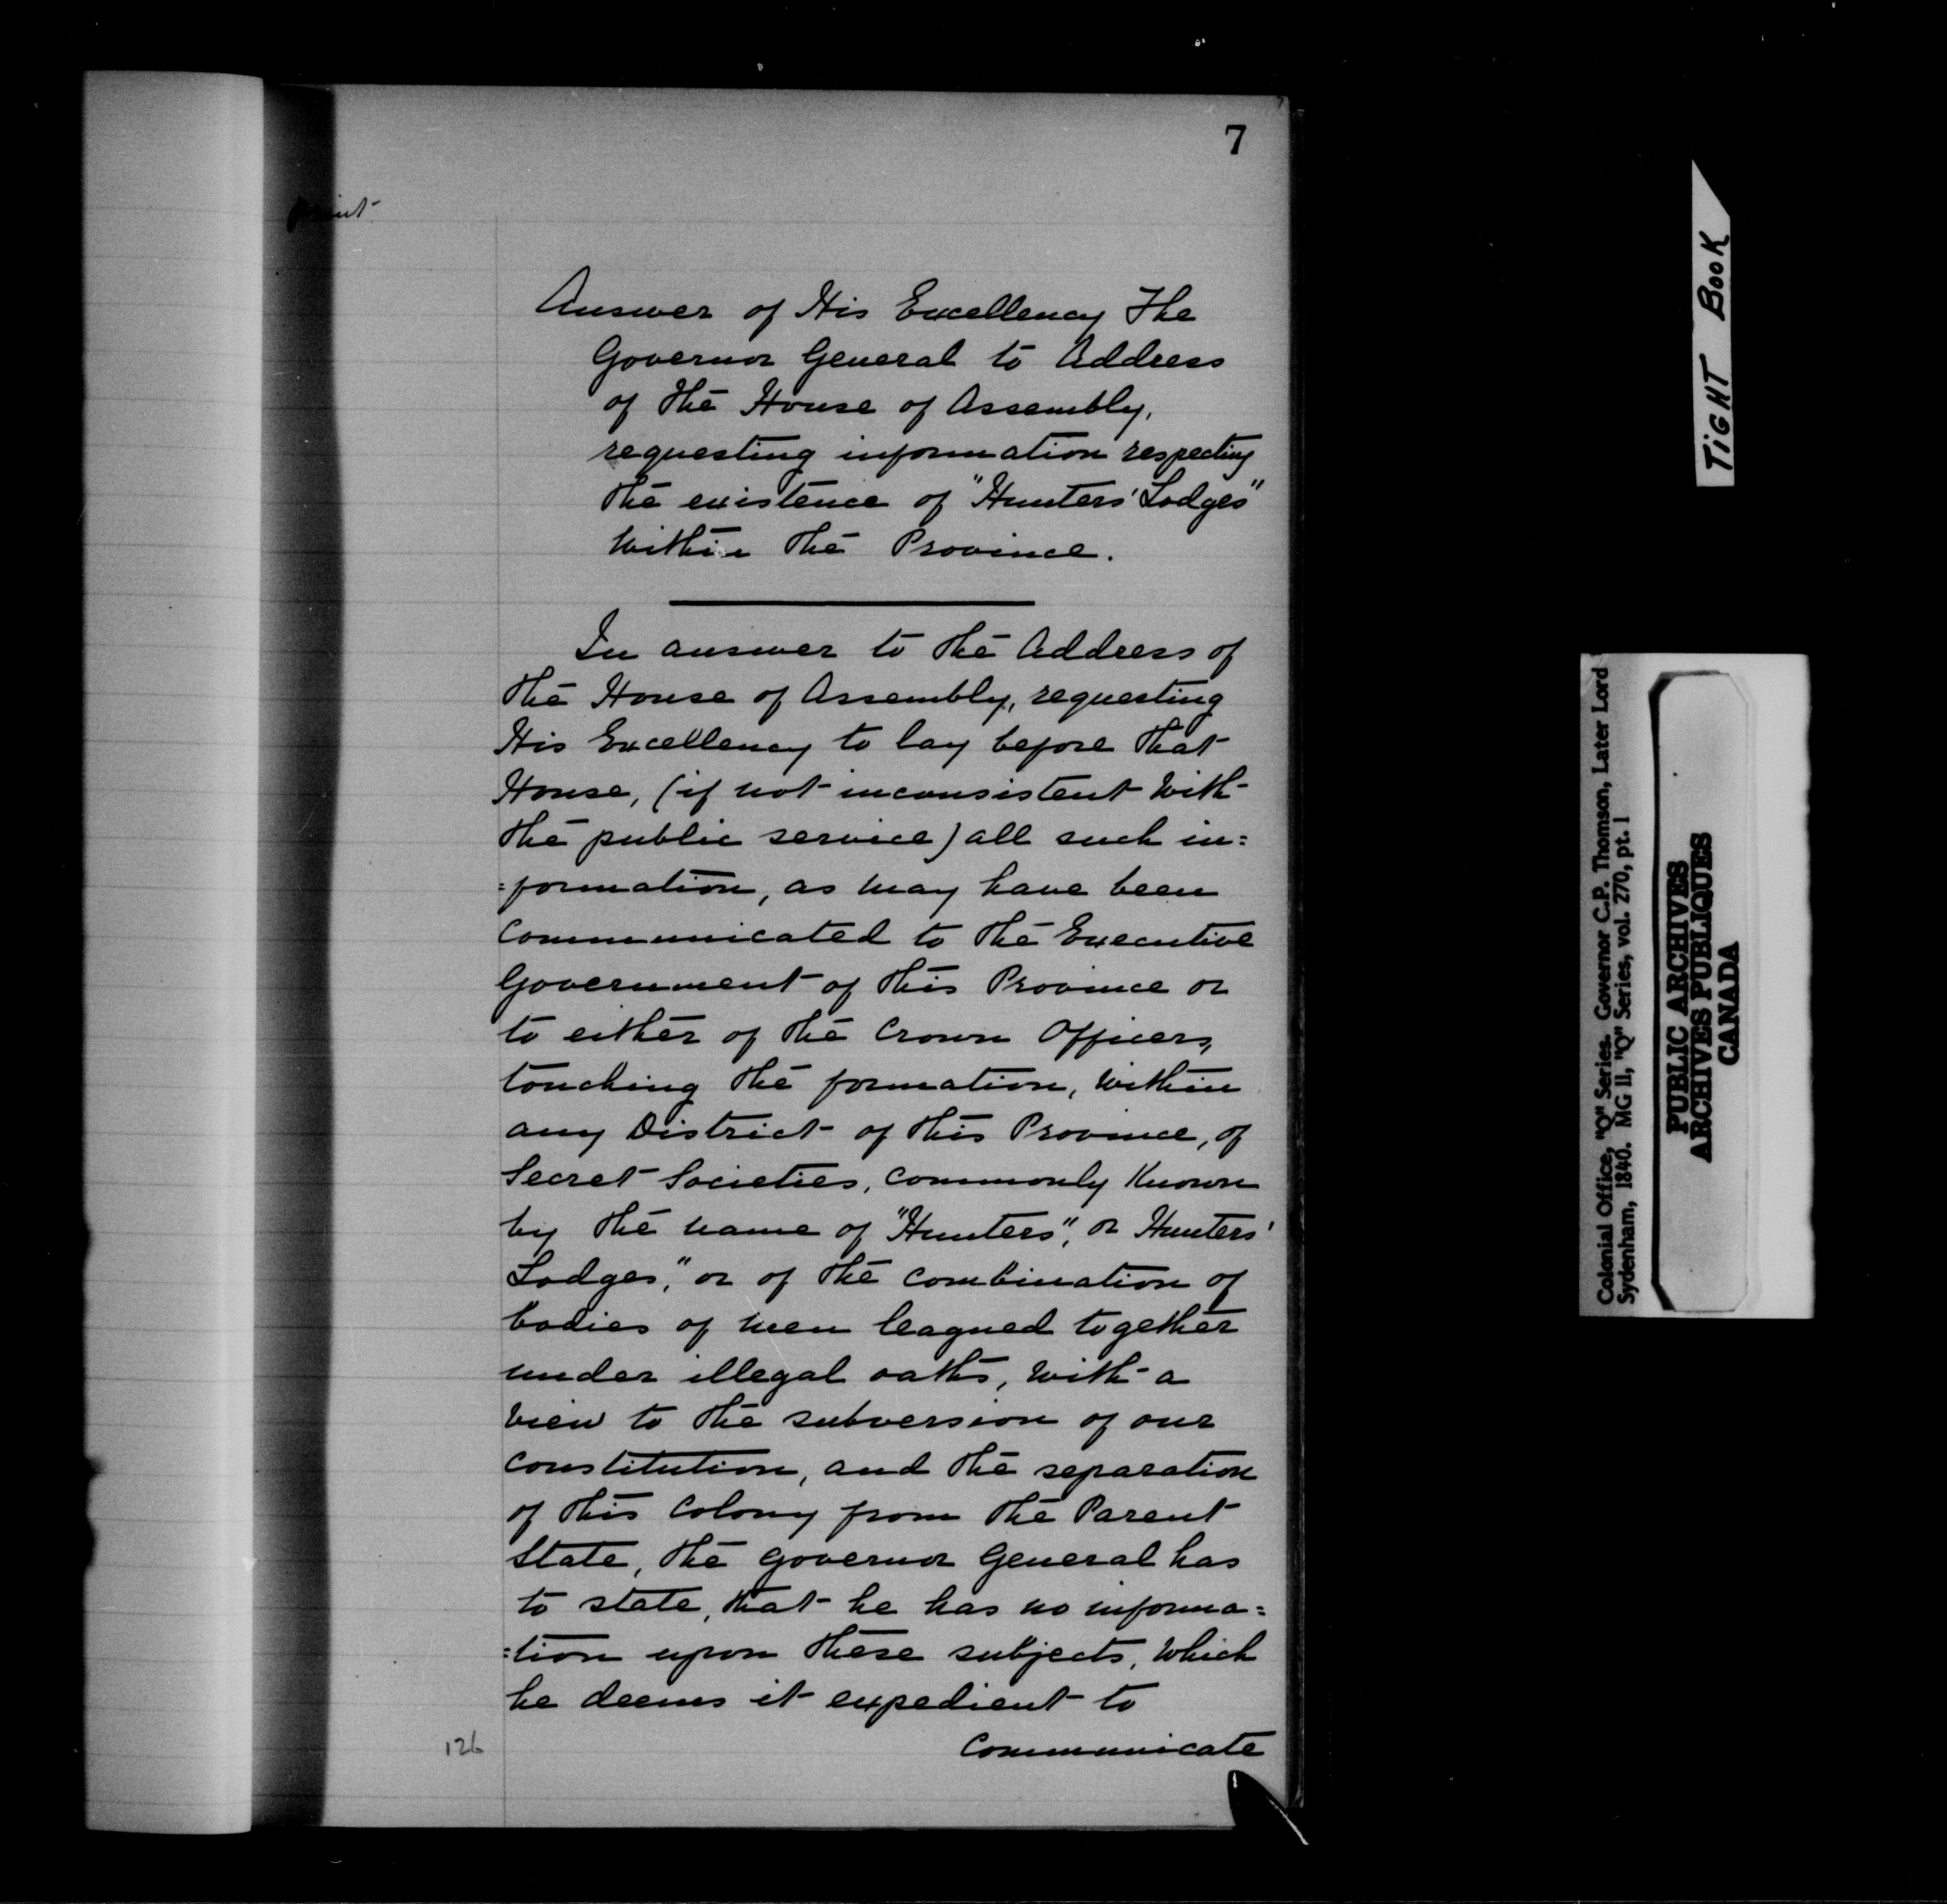 7
Answer of His Excellency The
Governor General to Address
of the House of Assembly,
requesting information respecting
the existence of "Hunters' Lodges"
within the Province.
In answer to the Address of
the House of Assembly, requesting
His Excellency to lay before that
House, (if not inconsistent with
the public service) all such in=
=formation, as may have been
communicated to the Executive
Government of this Province or
to either of the Crown Officers,
touching the formation, within
any District of this Province, of
Secret Societies, commonly Known
by the name of "Hunters", or Hunters'
Lodges," or of the combination of
bodies of men leagued together
under illegal oaths, with a
view to the subversion of our
constitution, and the separation
of this Colony from the Parent
State, the Governor General has
to state, that he has no informa=
=tion upon these subjects, which
he deems it expedient to
communicate
126
TIGHT BOOK
Colonial Office, "Q" Series. Governor C.P. Thomson, Later Lord
Sydenham, 1840. MG 11, "Q" Series, vol. 270, pt. 1
PUBLIC ARCHIVES
ARCHIVES PUBLIQUES
CANADA